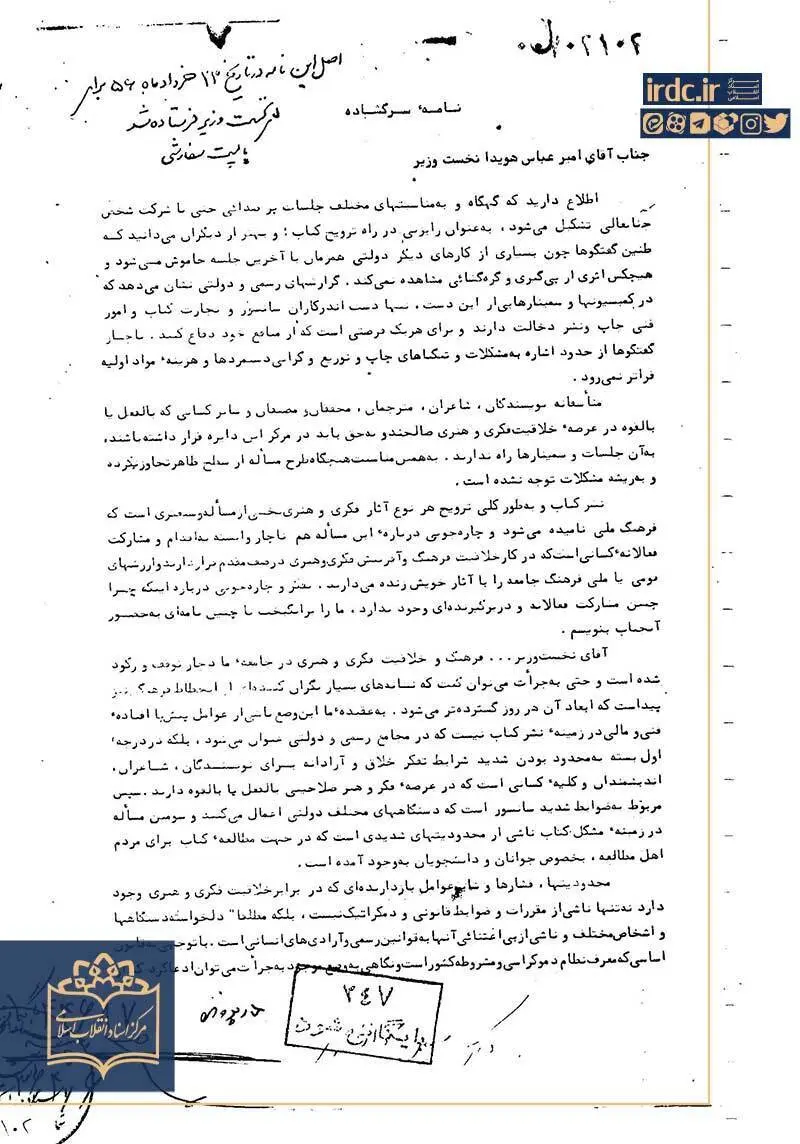 ۰۲۱۰۲
irdc.ir
مرکز اسناد انقلاب اسلامی
اصل این نامه در تاریخ ۲۳ خرداد ماه ۵۶ برای
نخست وزیر فرستاده شد
با پست سفارشی
نامهٔ سرگشاده
جناب آقای امیر عباس هویدا نخست وزیر
اطلاع دارید که گهگاه و به‌مناسبتهای مختلف جلسات پر صدائی حتی با شرکت شخص
جنابعالی تشکیل می‌شود ، به‌عنوان رایزنی در راه ترویج کتاب ؛ و بهتر از دیگران می‌دانید کـه
طنین گفتگوها چون بسیاری از کارهای دیگر دولتی همزمان با آخرین جلسه خاموش مـی‌شود و
هیچکس اثری از پی‌گیری و گره‌گشائی مشاهده نمی‌کند . گزارشهای رسمی و دولتی نشان می‌دهد که
در کمیسیونها و سمینارهایی‌از این دست ، تنها دست اندرکاران سانسور و تجارت کتاب و امور
فنی چاپ ونشر دخالت دارند و برای هریک فرصتی است که‌از منافع خود دفاع کنـد . ناچـار
گفتگوها از حدود اشاره به‌مشکلات و تنگناهای چاپ و توزیع و گرانی‌دستمردها و هزینهٔ مواد اولیه
فراتر نمی‌رود .
متأسفانه نویسندگان ، شاعران ، مترجمان ، محققان‌و مصنفان و سایر کسانی که بالفعل یا
بالقوه در عرصهٔ خلاقیت‌فکری و هنری صالحندو به‌حق باید در مرکز این دایره قرار داشته‌باشند،
به‌آن جلسات و سمینارها راه ندارند . به‌همین‌مناسبت‌هیچگاه‌طرح مسأله از سطح ظاهرتجاوزنکرده
و به‌ریشه مشکلات توجه نشده است .
نشر کتاب و به‌طور کلی ترویج هر نوع آثار فکری و هنری‌بخشی‌ازمسأله‌وسیعتری است که
فرهنگ ملی نامیده می‌شود و چاره‌جویی دربارهٔ این مسأله هم ناچار وابسته به‌اقدام و مشارکت
فعالانهٔ کسانی‌است‌که در کارخلاقیت فرهنگ وآفرینش فکری‌وهنری درصف‌مقدم قراردارندوارزشهای
قومی یا ملی فرهنگ جامعه را با آثار خویش زنده می‌دارنـد . تفکر و چاره‌جویی درباره‌اینکه چـرا
چنین مشارکت فعالانه و دربرگیرنده‌ای وجود ندارد ، ما را برانگیخت تا چنین نامه‌ای به‌حضـور
آنجناب بنویسم .
آقای نخست‌وزیر... فرهنگ و خلاقیت فکری و هنری در جامعهٔ ما دچار توقف و رکود
شده است و حتی به‌جرأت می‌توان گفت که نشانه‌های بسیار نگران کننده‌ای از انحطاط فرهنگ‌نیز
پیداست که ابعاد آن در روز گسترده‌تر می‌شود . به‌عقیدهٔ‌ما این‌وضع ناشی‌از عوامل پیش‌پا افتادهٔ
فنی‌و مالی‌در زمینهٔ نشر کتاب نیست که در مجامع رسمی و دولتی عنوان می‌شود ، بلکه در‌درجهٔ
اول بسته به‌محدود بودن شدید شرایط تفکر خلاق و آزادانه بـرای نویسنـدگان ، شـاعران،
اندیشمندان و کلیهٔ کسانی است که در عرصهٔ فکر و هنر صلاحیتی بالفعل یا بالقوه دارند .سپس
مربوط به‌ضوابط شدید سانسور است که دستگاههای مختلف دولتی اعمال می‌کنند و سومین مسأله
در زمینهٔ مشکل‌کتاب ناشی از محدودیتهای شدیدی است که در جهت مطالعهٔ کتاب برای مردم
اهل مطالعه ، بخصوص جوانان و دانشجویان به‌وجود آمده است .
محدودیتها ، فشارها و سایرعوامل بازدارنده‌ای که در برابرخلاقیت فکری و هنری وجود
دارد نه‌تنها ناشی‌از مقررات و ضوابط قانونی و دمکراتیک‌نیست ، بلکه مطلقا" دلخواسته‌دستگاهها
و اشخاص‌مختلف و ناشی‌ازبی‌اعتنائی‌آنهابه‌قوانین‌رسمی‌وآزادی‌های‌انسانی‌است . باتوجهی‌به‌قانون
اساسی‌که‌معرف‌نظام دموکراسی‌ومشروطه‌کشوراست‌ونگاهی به‌وضع‌موجود به‌جرأت‌می‌توان‌ادعاکرد که
۳۴۷
مرکز اسناد انقلاب اسلامی
۱۰۲